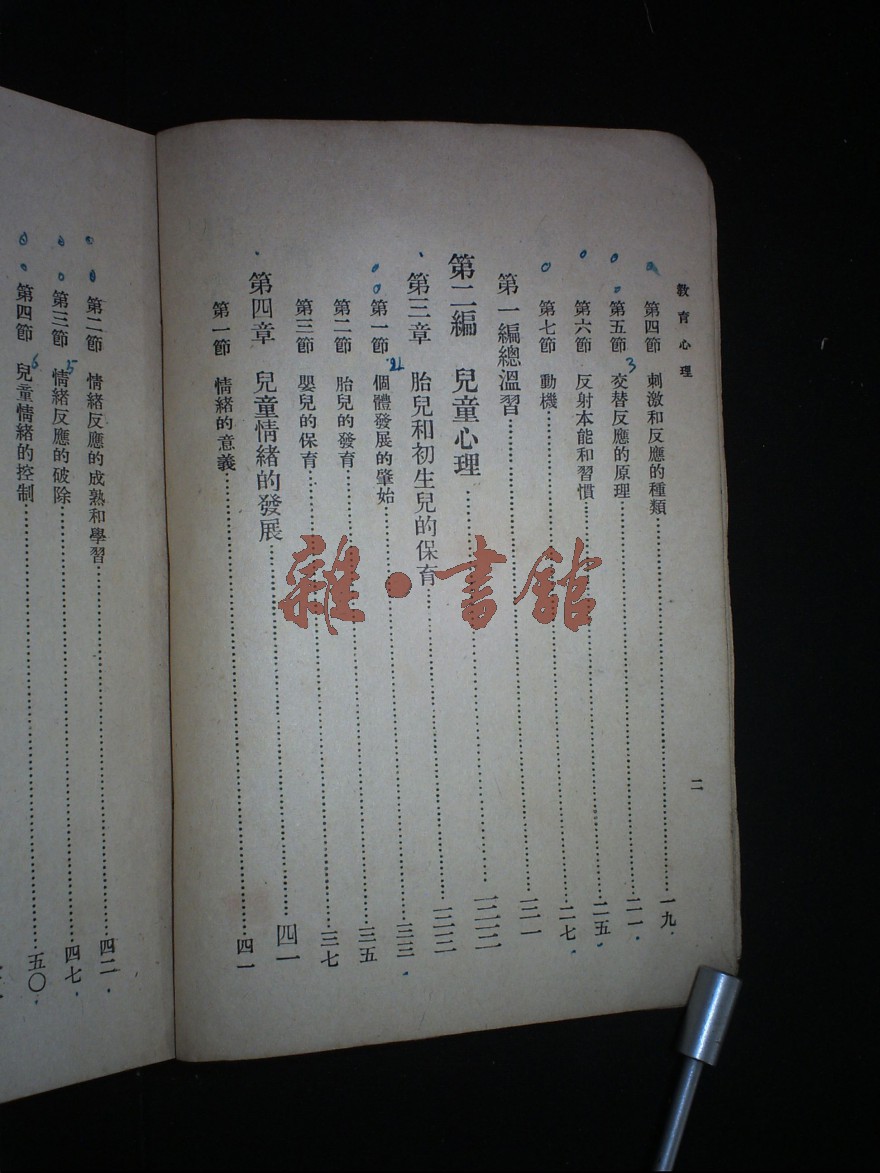 教育心理
二
第四節 刺激和反應的種類……一九
第五節 交替反應的原理……二一
3
第六節 反射本能和習慣……二五
第七節 動機……二七
第一編總溫習……三一
第二編 兒童心理……三三
第三章 胎兒和初生兒的保育……三三
第一節 個體發展的肇始……三三
第二節 胎兒的發育……三五
第三節 嬰兒的保育……三七
第四章 兒童情緒的發展……四一
第一節 情緒的意義……四一
第二節 情緒反應的成熟和學習……四二
第三節 情緒反應的破除……四七
5
第四節 兒童情緒的控制……五〇
6
雜·書館